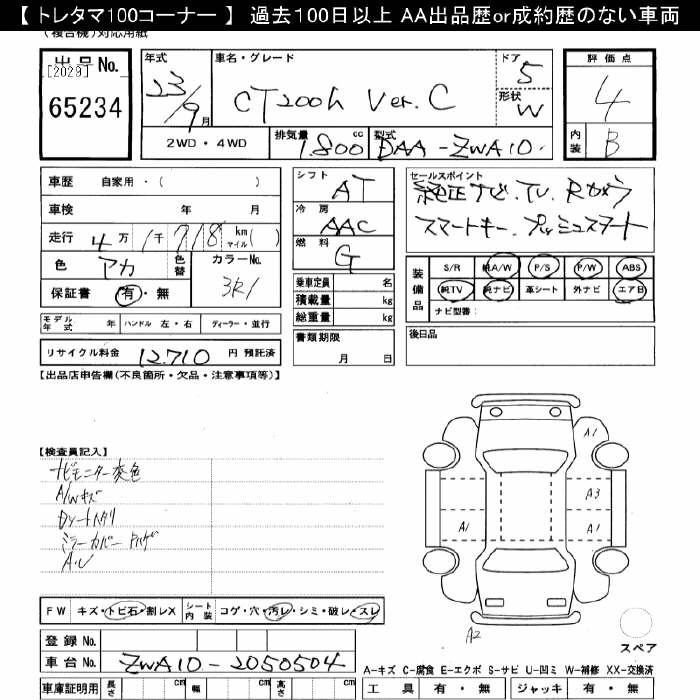 【 トレタマ100コーナー 】 過去100日以上 AA出品歴or成約歴のない車両
(複合機)対応用紙
出品No.
[2029]
65234
年式
23/9月
車名・グレード
CT200h Ver. C
ドア
5
形状
W
2WD ・ 4WD
排気量
1800 cc
型式
DAA-ZWA10
評価点
4
内装
B
車歴 自家用・( )
車検 年 月
走行 4万1千718 km マイル( )
色 アカ 色替 カラーNo. 3R1
保証書 有・無
モデル年式 年 ハンドル 左・右 ディーラー・並行
リサイクル料金 12,710 円 預託済
シフト AT
冷房 AAC
燃料 G
乗車定員 名
積載量 kg
総重量 kg
書類期限
月 日
セールスポイント
純正ナビ.TV.Rカメラ
スマートキー.プッシュスタート
装備品
S/R 純A/W P/S P/W ABS
純TV 純ナビ 革シート 外ナビ エアB
ナビ型番:
後日品
【出品店申告欄(不良箇所・欠品・注意事項等)】
【検査員記入】
ナビモニター変色
A/Wキズ
ミラーカバー
A.U
A1
A3
A1
A1
A2
スペア
FW キズ・トビ石・割レX シート内装 コゲ・穴・汚レ・シミ・破レ・スレ
登録 No.
車台 No. ZWA10-2050504
車庫証明用 長さ cm 幅 cm 高さ cm
A-キズ C-腐食 E-エクボ S-サビ U-凹ミ W-補修 XX-交換済
工具 有・無 ジャッキ 有・無